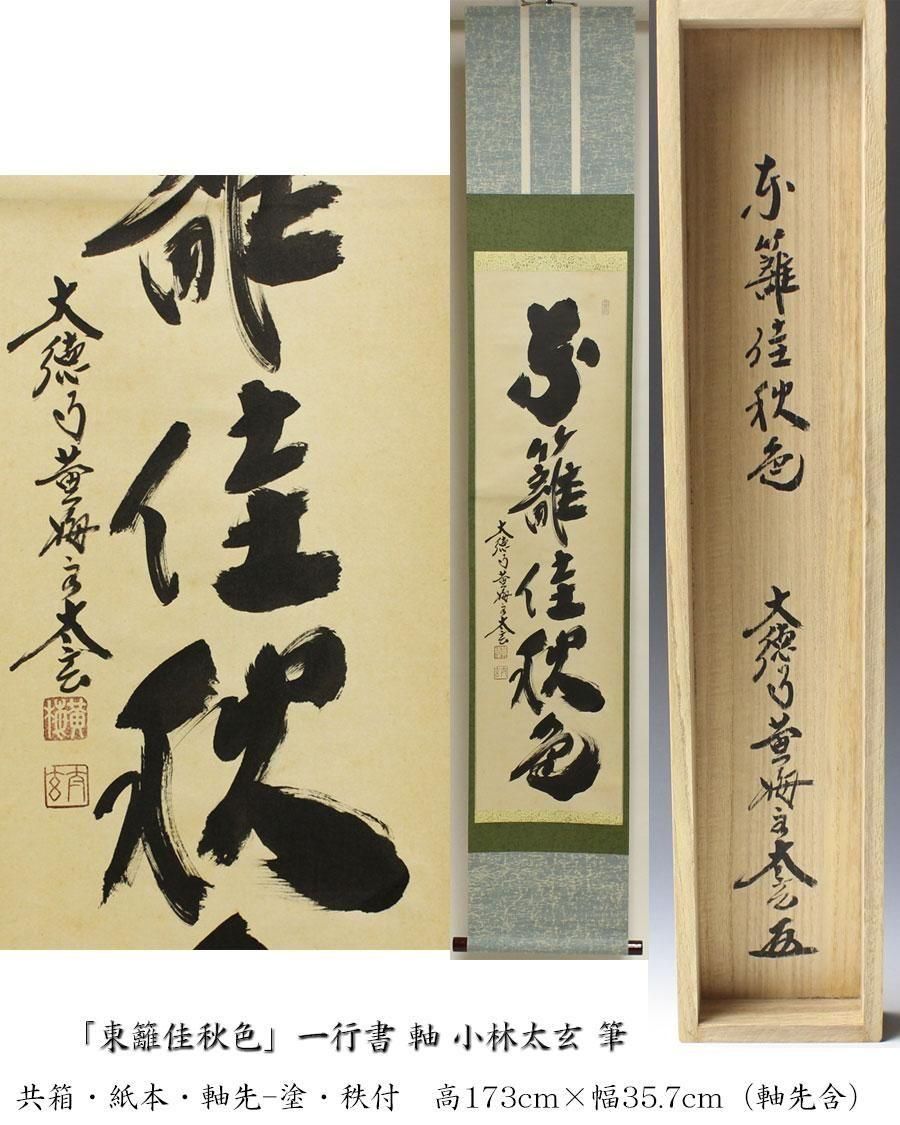 東籬佳秋色
大徳寺黄梅主太玄
籬佳秋
大徳寺黄梅主太玄
黄梅
太玄
東籬佳秋色
大徳寺黄梅主太玄
「東籬佳秋色」一行書 軸 小林太玄 筆
共箱・紙本・軸先-塗・秩付　高173cm×幅35.7cm（軸先含）